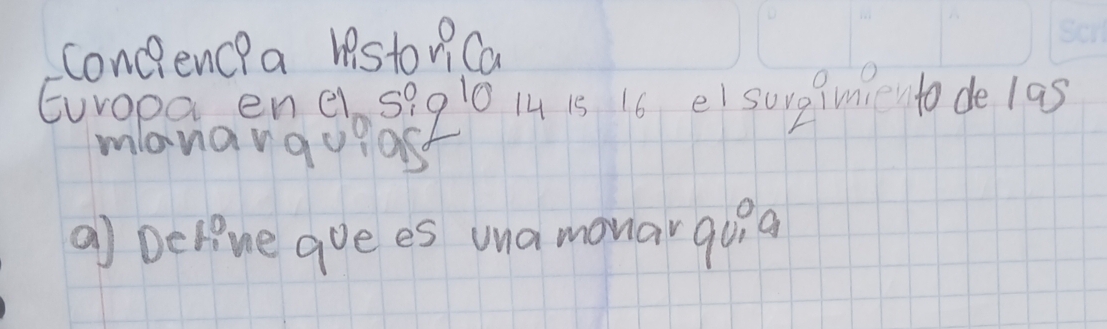 Conciencia historica
Europa en el siglo 14 15 16 el surgimiento de las
monarquias
a) Define que es una monarquia